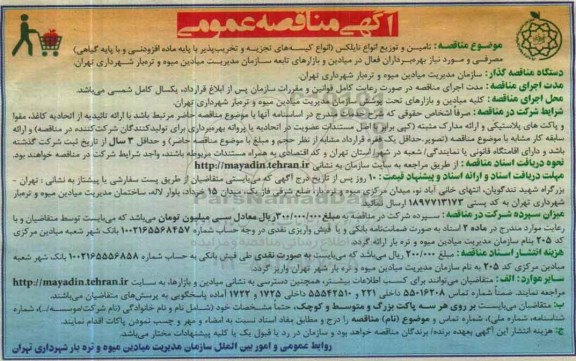 آگهی مناقصه عمومی
موضوع مناقصه: تامین و توزیع انواع نایلکس (انواع کیسه‌های تجزیه و تخریب‌پذیر با پایه ماده افزودنی و با پایه گیاهی)
مصرفی و مورد نیاز بهره‌برداران فعال در میادین و بازارهای تابعه سازمان مدیریت میادین میوه و تره‌بار شهرداری تهران.
دستگاه مناقصه گذار: سازمان مدیریت میادین میوه و تره‌بار شهرداری تهران.
مدت اجرای مناقصه: مدت اجرای مناقصه در صورت رعایت کامل قوانین و مقررات سازمان پس از ابلاغ قرارداد، یکسال کامل شمسی می‌باشد.
محل اجرای مناقصه: کلیه میادین و بازارهای تحت پوشش سازمان مدیریت میادین میوه و تره‌بار شهرداری تهران.
شرایط شرکت در مناقصه: صرفاً اشخاص حقوقی که شرح خدمات مندرج در اساسنامه آنها با موضوع مناقصه حاضر مرتبط باشد با ارائه تائیدیه از اتحادیه کاغذ، مقوا
و پاکت های پلاستیکی و ارائه مدارک مثبته (کپی برابر با اصل مستندات عضویت در اتحادیه یا پروانه بهره‌برداری برای تولیدکنندگان شرکت‌کننده در مناقصه) و ارائه
سابقه کار مشابه با موضوع مناقصه (تصویر حداقل یک فقره قرارداد مشابه از نظر حجم و مبلغ با موضوع مناقصه حاضر) و حداقل ۳ سال از تاریخ ثبت شرکت گذشته
باشد و دارای اقامتگاه قانونی یا نمایندگی/ شعبه در شهر/استان تهران و کد اقتصادی به همراه مستندات مربوطه باشند، واجد شرایط شرکت در مناقصه خواهند بود.
نحوه دریافت اسناد مناقصه: از طریق مراجعه به سایت سازمان به نشانی http://mayadin.tehran.ir
مهلت دریافت اسناد و ارائه اسناد و پیشنهاد قیمت: ۱۰ روز پس از تاریخ درج آگهی که می‌بایستی متقاضیان از طریق پست سفارشی یا پیشتاز به نشانی: تهران -
بزرگراه شهید تندگویان، انتهای خانی آباد نو، میدان مرکزی میوه و تره‌بار، ضلع شرقی فاز یک، میدان ۱۵ خرداد، بلوار لاله، ساختمان مدیریت میادین مرکزی
شهرداری تهران به کد پستی ۱۸۹۷۷۱۳۱۷۳ ارسال نمایند.
میزان سپرده شرکت در مناقصه: سپرده شرکت در مناقصه به مبلغ ۳۰۰/۰۰۰/۰۰۰ ریال معادل سی میلیون تومان می‌باشد که می‌بایست توسط متقاضیان و با
رعایت موارد مندرج در ماده ۲ اسناد به صورت ضمانت‌نامه بانکی و یا فیش واریزی نقدی در وجه حساب شماره ۱۰۰۲۱۶۵۵۶۸۴۵۷ بانک شهر شعبه میادین مرکزی
کد ۲۰۵ بنام سازمان مدیریت میادین میوه و تره بار ارائه گردد.
هزینه انتشار اسناد مناقصه: مبلغ ۲۰۰/۰۰۰ ریال می‌باشد که می‌بایست به صورت نقدی طی فیش بانکی به حساب شماره ۱۰۰۲۱۶۵۵۵۶۸۵۸ بانک شهر شعبه
میادین مرکزی کد ۲۰۵ به نام سازمان مدیریت میادین میوه و تره بار شهر تهران واریز گردد.
سایر موارد: الف: متقاضیان می‌توانند برای کسب اطلاعات بیشتر، همچنین دسترسی به نشانی میادین و بازارها، به سایت http://mayadin.tehran.ir
مراجعه نمایند. ضمناً شماره تماس ۵۵۰۱۶۲۰۸ داخلی ۲۲۱ و ۵۵۵۴۲۵۱۰ داخلی ۱۷۲۵ و ۱۷۲۲ آماده پاسخگویی به پرسش‌های متقاضیان می‌باشند.
ب: متقاضیان می‌بایست بر روی هر سه پاکت بزرگ و متوسط و کوچک، حتماً مشخصات خود (شامل نام و نام خانوادگی (نام شرکت/موسسه/...)، شماره
شناسنامه، شماره ملی)، شماره تماس و موضوع (نام) مناقصه را درج و مطابق مفاد اسناد نسبت به امضاء و مهر و چسب نمودن پاکات اقدام نمایند.
ج: هزینه انتشار این آگهی بعهده برنده/ برندگان مناقصه خواهد بود و سازمان در رد یا قبول یک یا کلیه پیشنهادات مختار می‌باشد.
روابط عمومی و امور بین الملل سازمان مدیریت میادین میوه و تره بار شهرداری تهران